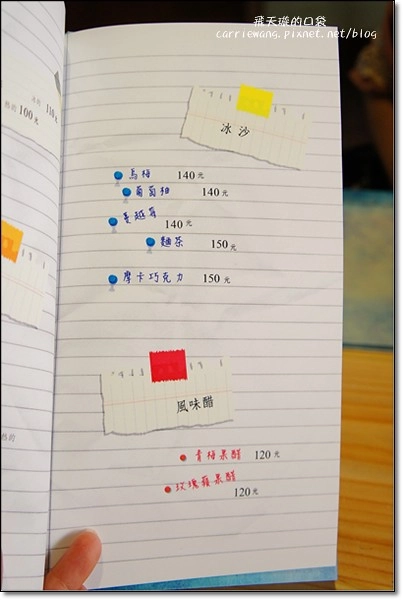 飛天璇的口袋
carriewang.pixnet.net/blog
冰的 110元
熱的 100元
冰沙
烏梅 140元
葡萄柚 140元
蔓越莓 140元
麵茶 150元
摩卡巧克力 150元
風味醋
青梅果醋 120元
玫瑰莓果醋 120元
熱的